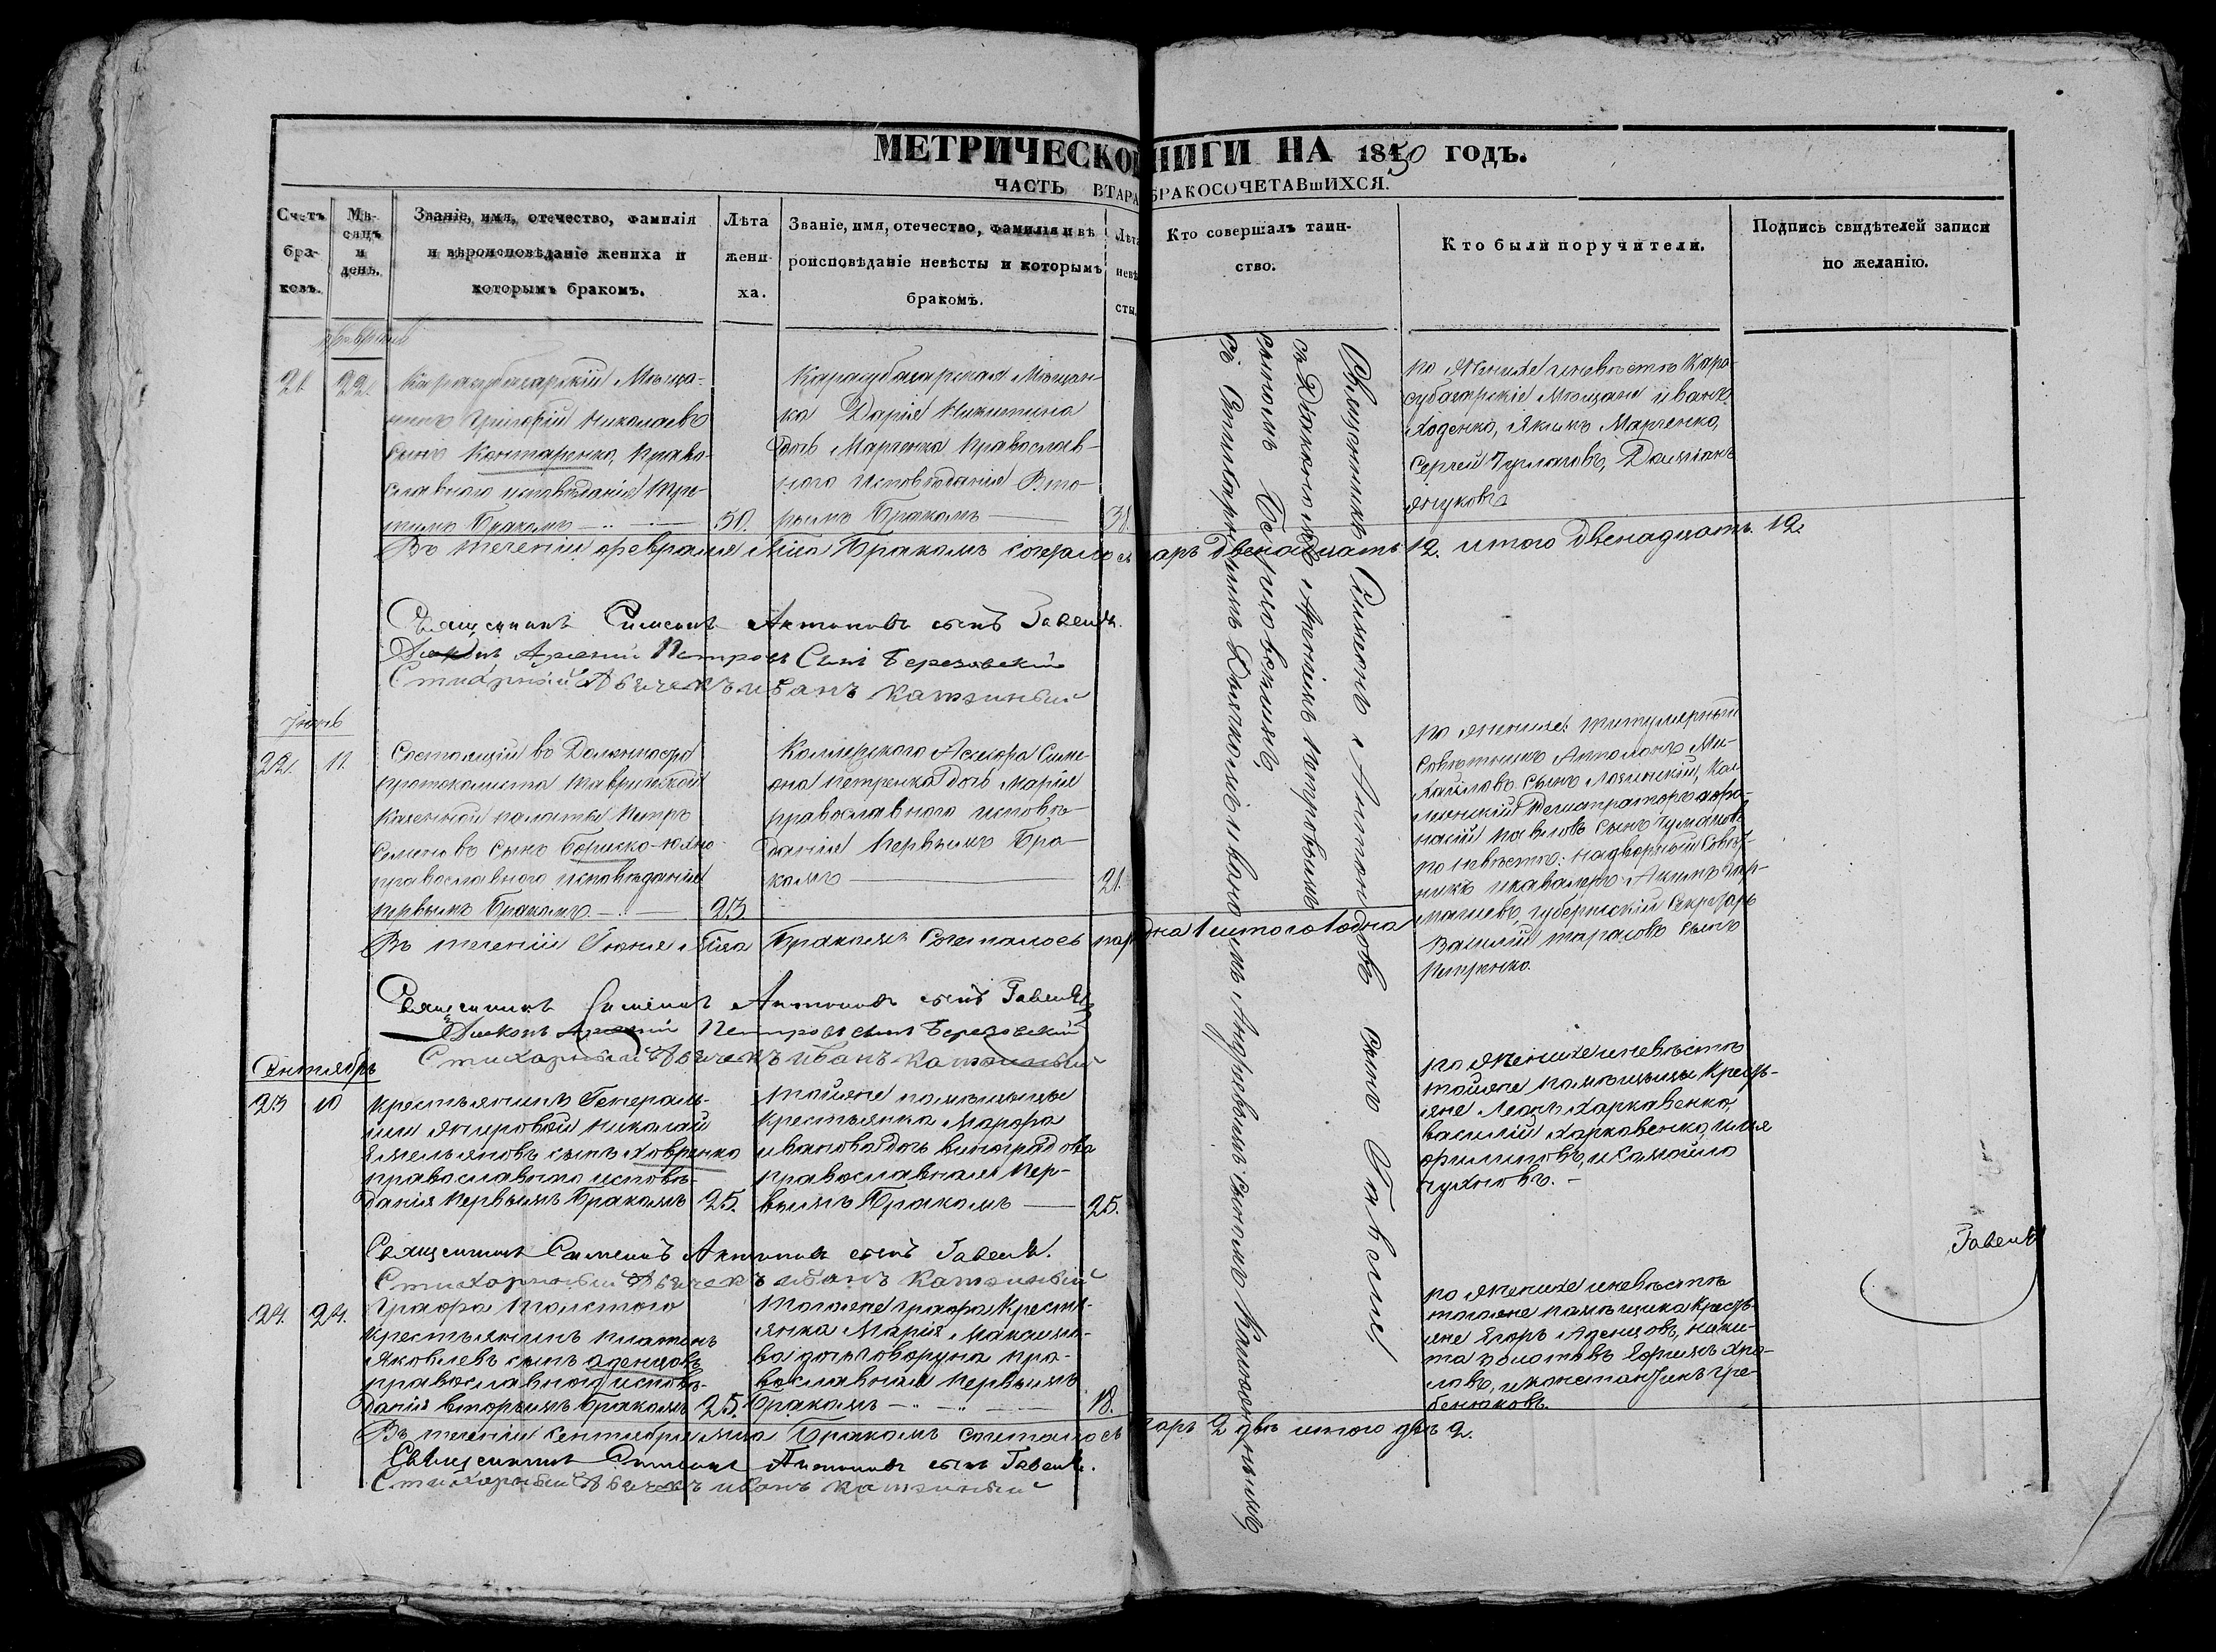 МЕТРИЧЕСКО НИГИ НА 1850 ГОДЪ.
ЧАСТЬ ВТАРА БРАКОСОЧЕТАВшИХСЯ.
Счетъ бра- ковъ.
Мѣ- сяцъ и день.
Званіе, имя, отечество, фамилія
и вѣроисповѣданіе жениха и
которымъ бракомъ.
Лѣта
жени-
ха.
Званіе, имя, отечество, фамилія и вѣ
роисповѣданіе невѣсты и которымъ
бракомъ.
Лѣта
невѣ
сты.
Кто совершалъ таин-
ство.
Кто были поручители.
Подпись свидѣтелей записи
по желанію.
февраль
21. 22.
Карасубазарскій Мѣща-
нинъ Григорій Николаевъ
Сынъ Контаренко, Право-
славнаго исповѣданія Тре-
тимъ Бракомъ
50.
Карасубазарская Мѣщан-
ка Дарія Никитина
дочь Марченка Православ-
наго Исповѣданія Вто-
рымъ Бракомъ
38.
по Женихе и невѣстѣ Кара-
субазарскіе Мѣщане Иванъ
Ходенко, Якимъ Марченко,
Сергей, Даміанъ
Януковъ
Въ теченіи февраля М҃ца Бракомъ сочеталось паръ двенадцать 12. итого двенадцать 12.
Священникъ Симеонъ Антоновъ сынъ Габель.
Діаконъ Арсеній Петровъ Сынъ Березовскій
Стихарный Дьячекъ Иванъ
Іюнь
22. 11.
Состоящій въ Должности
протоколиста Таврической
казенной палаты Петръ
Семеновъ Сынъ Бориско-
православнаго исповѣданія
первымъ Бракомъ
23
Коллежскаго Асесора Симе-
она Петренка дочь Марія
православнаго исповѣ-
данія Первымъ Бра-
комъ
21.
по женихе: титулярный
Совѣтникъ Аполонъ Ми-
хайловъ Сынъ Лозинскій, Кол-
лежскій Регистраторъ Афа-
насій Павловъ Сынъ
по невѣсте: надворный Совѣт-
никъ и кавалеръ Акимъ
Губернскій Секретарь
Василій Тарасовъ Сынъ
Петренко.
Въ теченіи Іюня М҃ца Бракомъ Сочеталось пар одна 1 итого 1 одна
Священникъ Симеонъ Антоновъ сынъ Габель
Діаконъ Арсеній Петровъ сынъ Березовскій
Стихарный Дьячекъ Иванъ
Сентябрь
23 10
Крестьянинъ Генераль-
ши Николай
Емельяновъ сынъ Ховренко
православнаго исповѣ-
данія Первымъ Бракомъ
25.
тойже помѣщицы
Крестьянка Марфа
Иванова дочь Виноградова
православная Пер-
вымъ Бракомъ
25.
по Женихе и невѣстѣ
тойже помѣщицы Кресть-
яне Леонъ Харкавенко,
Василій Харкавенко, Илья
Филиповъ, и Самойло
Пухновъ.
Священникъ Симеонъ Антоновъ сынъ Габель.
Стихарный Дьячекъ Иванъ
24. 24.
Графа Толстого
Крестьянинъ Платонъ
Яковлевъ сынъ Аденцовъ
православного исповѣ-
данія вторымъ Бракомъ
25.
Тогоже Графа Кресть-
янка Марія Максимо-
ва дочь Говоруна пра-
вославная Первымъ
Бракомъ
18.
по Женихе и невѣстѣ
тогоже помѣщика Кресть-
яне Егоръ Аденцовъ, Ники-
та Золотовъ Ефимъ
и Константинъ Гре-
бенюковъ
Въ теченіи Сентября М҃ца Бракомъ Сочеталось паръ 2 двѣ итого двѣ 2.
Священникъ Симеонъ Антоновъ сынъ Габель.
Стихарный Дьячекъ Иванъ
Священникъ Симеонъ Антоновъ сынъ Габель,
съ Діакономъ Арсеніемъ Петровымъ
сыномъ Березовскимъ,
съ Стихарнымъ Дьячкомъ Иваномъ Андреевымъ сыномъ
Габель